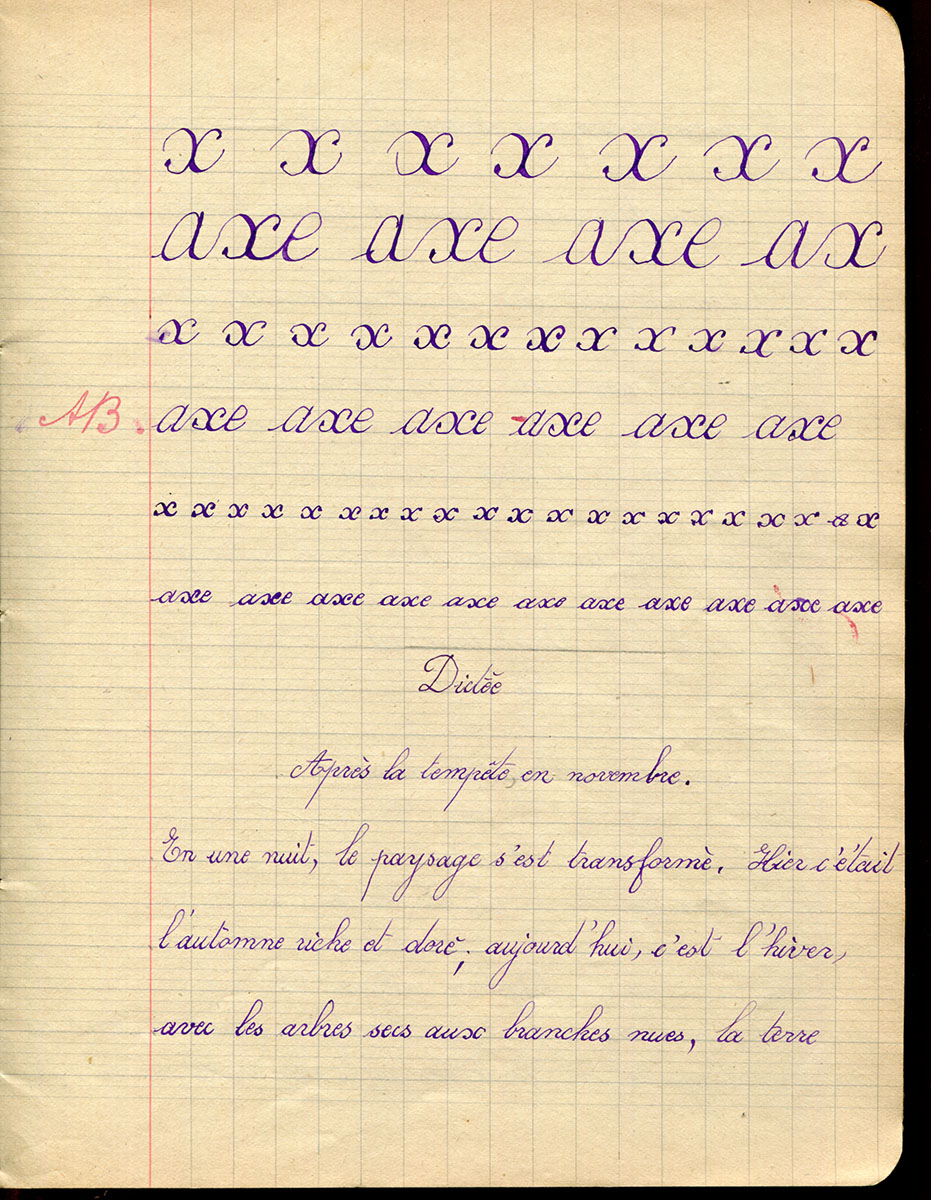 x x x x x x x
axe axe axe ax
x x x x x x x x x x x x x
AB. axe axe axe axe axe axe
x x x x x x x x x x x x x x x x x x x x x
axe axe axe axe axe axe axe axe axe axe axe
Dictée
Après la tempête, en novembre.
En une nuit, le paysage s'est transformé. Hier c'était
l'automne riche et doré; aujourd'hui, c'est l'hiver,
avec les arbres secs aux branches nues, la terre